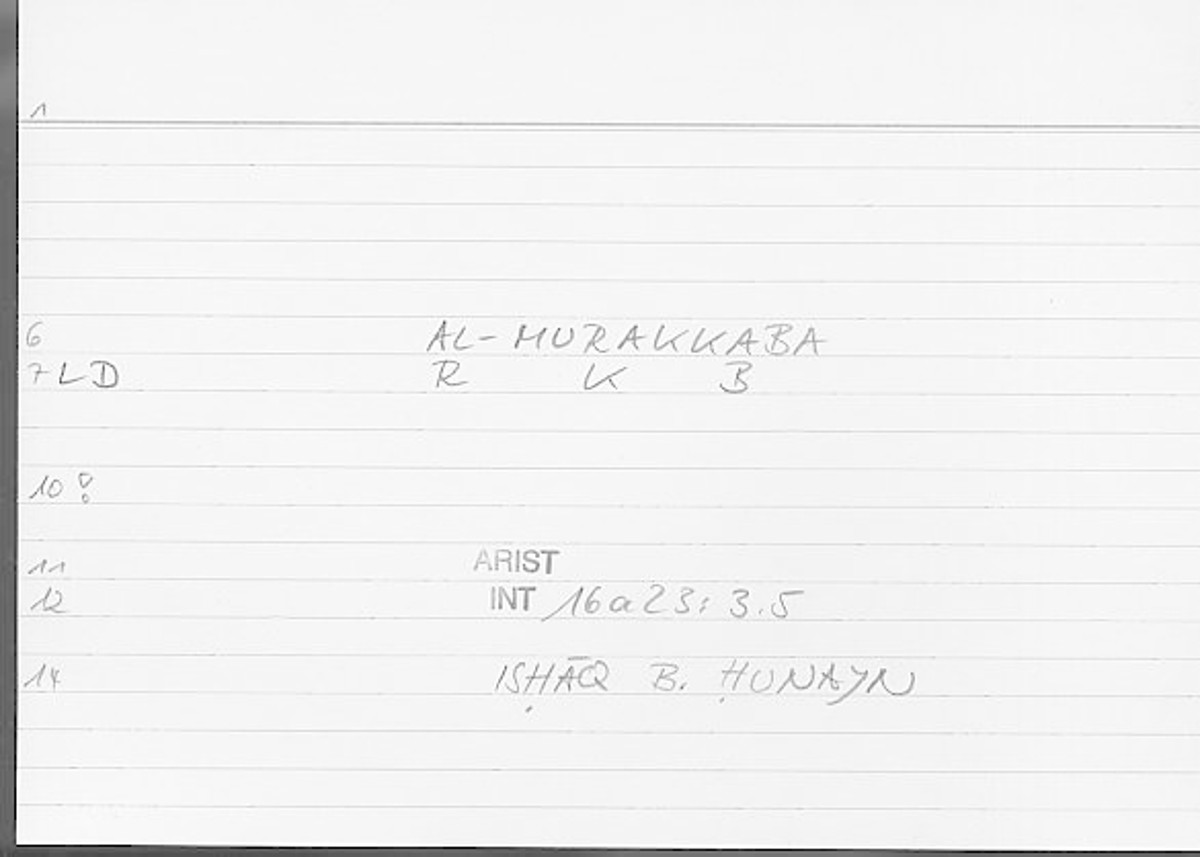 1
6 AL-MURAKKABA
7 LD R K B
10
11 ARIST
12 INT 16a23: 3.5
14 ISḤĀQ B. ḤUNAYN